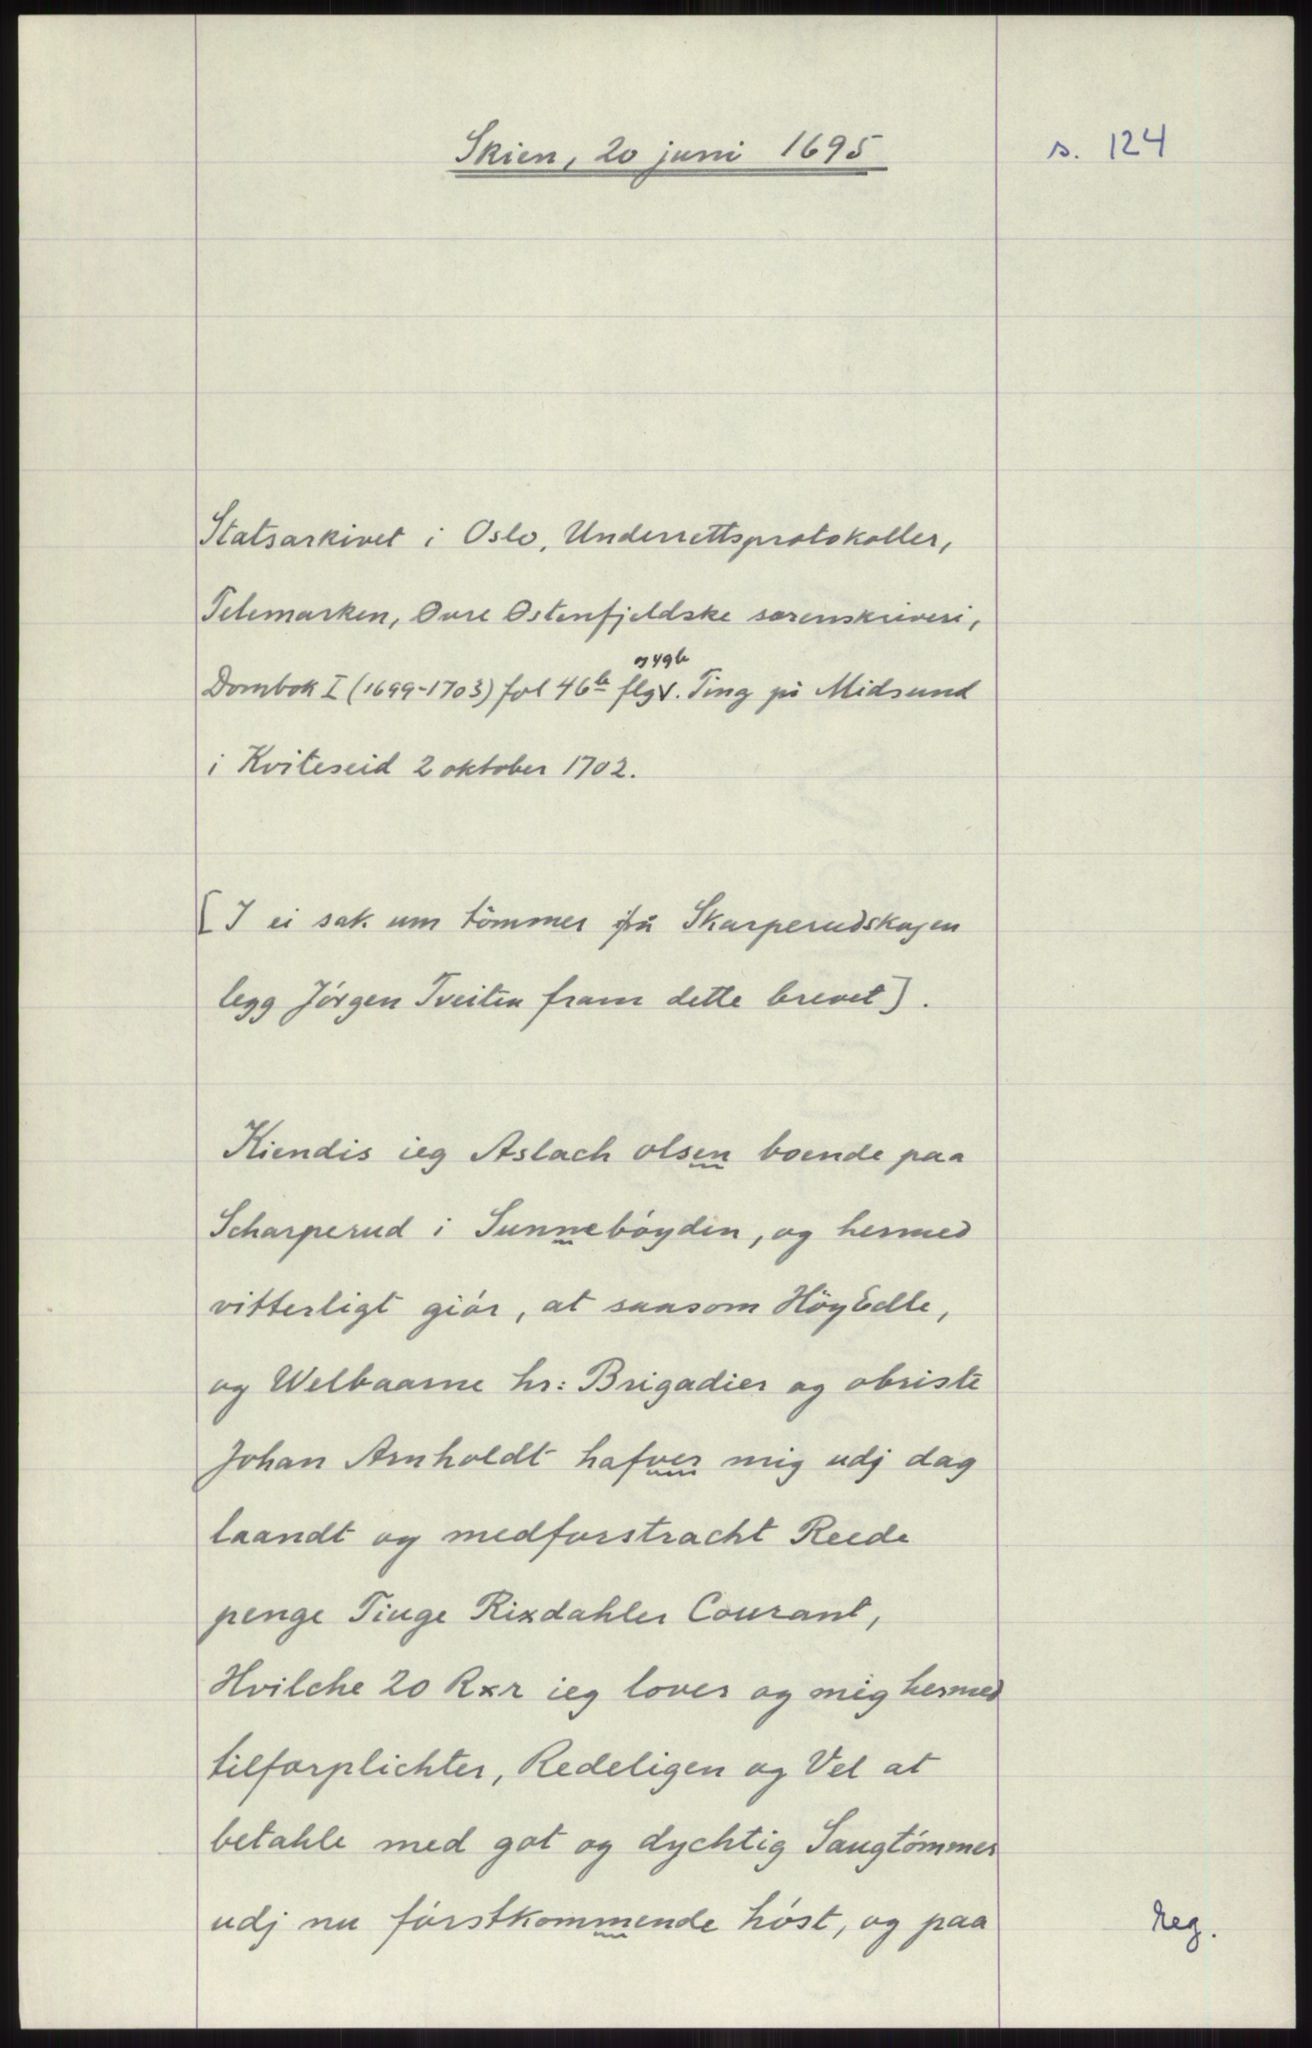 Skien, 20 juni 1695
s. 124
Statsarkivet i Oslo, Underrettsprotokoller,
Telemarken, Øvre Østenfjeldske sorenskriveri,
og 49b
Dombok I (1699-1703) fol 46b flg. Ting på Midsund
i Kviteseid 2 oktober 1702.
[I ei sak um tömmer på Skarperudskogen
legg Jörgen Tveiten fram dette brevet].
Kiendis ieg Aslach olsen boende paa
Scharperud i Sunnebóyden, og hermed
vitterligt giór, at saasom HöyEdle,
og Welbaarne hr: Brigadier og obriste
Johan Arnholdt hafver mig udj dag
laandt og medforstracht Reede
penge Tiuge Rixdahler Courant,
Hvilche 20 Rxr ieg lover og mig hermed
tilforplichter, Redeligen og Vel at
betahle med got og dychtig Saugtómmer
udj nu fórstkommende hóst, og paa
reg.